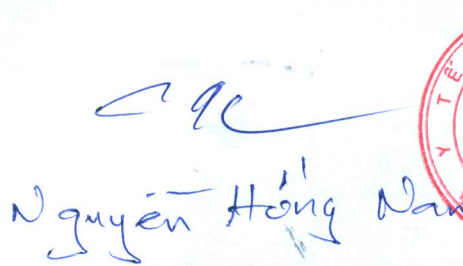 Nguyễn Hồng Nam
Y TẾ